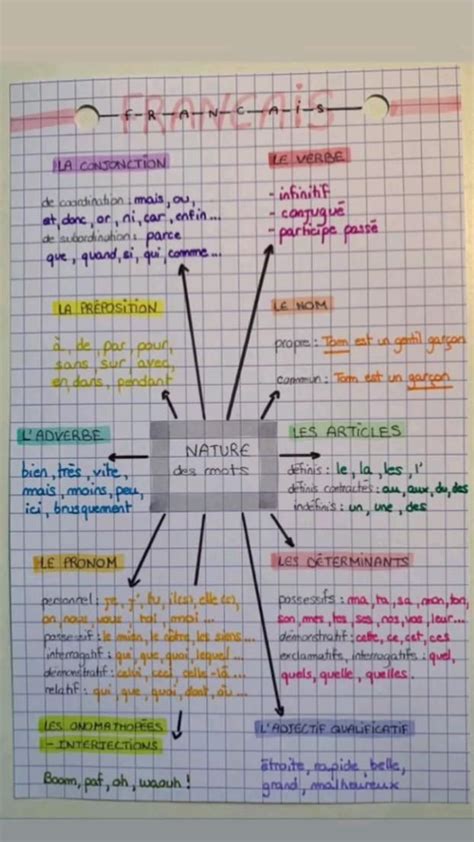 FRANCAIS
F-R-A-N-C-A-I-S
LA CONJONCTION
de coordination : mais, ou,
et, donc, or, ni, car, enfin...
de subordination : parce
que, quand, si, qui, comme...
LE VERBE
- infinitif
- conjugué
- participe passé
LA PRÉPOSITION
à, de, par, pour,
sans, sur, avec,
en, dans, pendant
LE NOM
propre : Tom est un gentil garçon
commun : Tom est un garçon
L'ADVERBE
bien, très, vite,
mais, moins, peu,
ici, brusquement
NATURE
des mots
LES ARTICLES
définis : le, la, les, l'
définis contractés : au, aux, du, des
indéfinis : un, une, des
LE PRONOM
personnel : je, j', tu, il(s), elle(s),
on, nous, vous, toi, moi...
possessif : le mien, le nôtre, les siens...
interrogatif : qui, que, quoi, lequel...
démonstratif : celui, ceci, celle-là...
relatif : qui, que, quoi, dont, où...
LES DÉTERMINANTS
possessifs : ma, ta, sa, mon, ton,
son, mes, tes, ses, nos, vos, leur...
démonstratif : cette, ce, cet, ces
exclamatifs, interrogatifs : quel,
quels, quelle, quelles.
LES ONOMATHOPÉES
- INTERJECTIONS
Boom, paf, oh, waouh !
L'ADJECTIF QUALIFICATIF
étroite, rapide, belle,
grand, malheureux